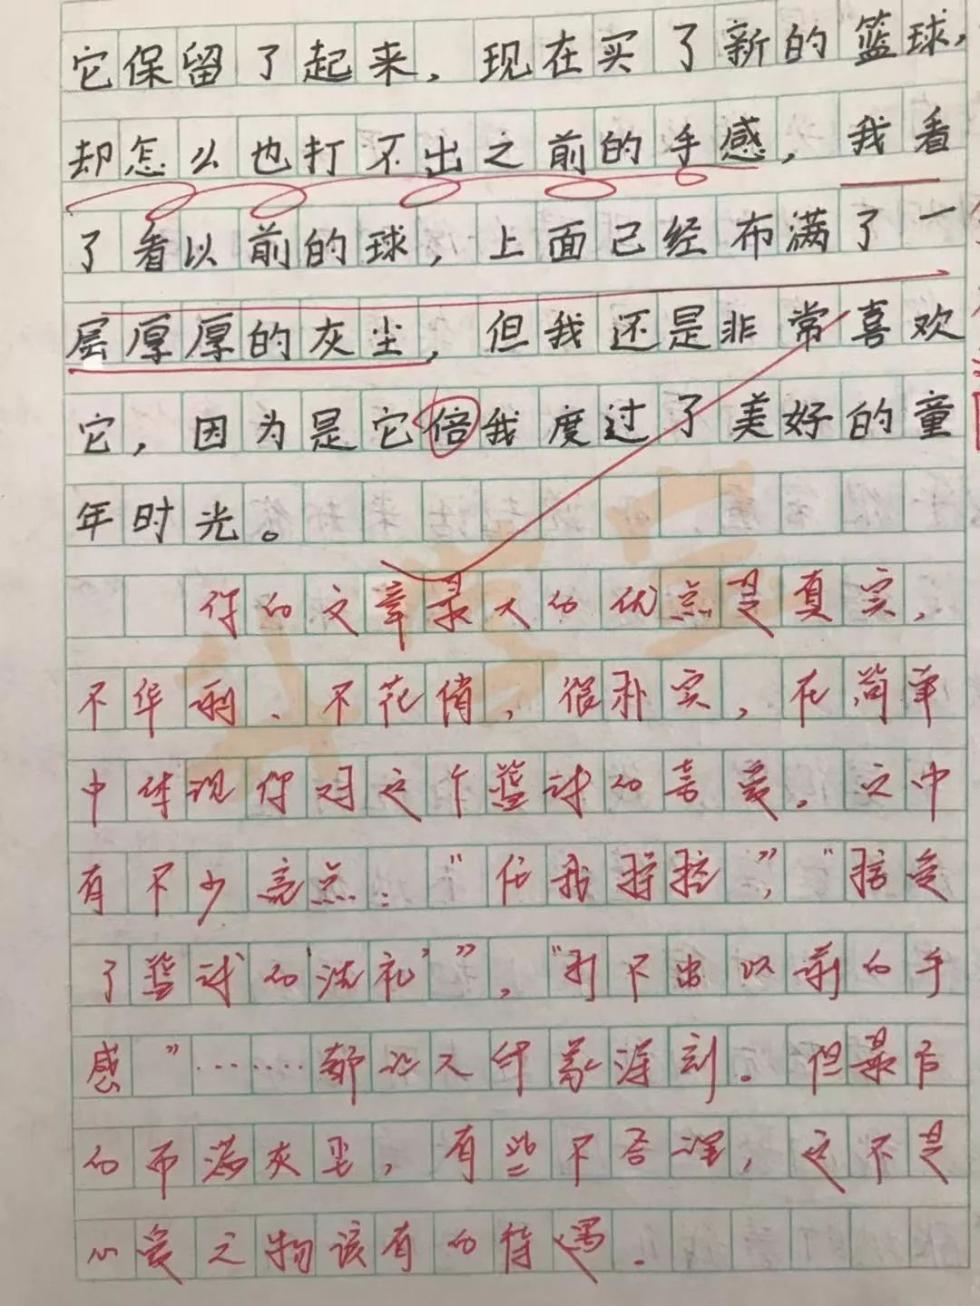 它保留了起来，现在买了新的篮球，
却怎么也打不出之前的手感，我看
了看以前的球，上面已经布满了一
层厚厚的灰尘，但我还是非常喜欢
它，因为是它倍我度过了美好的童
年时光。
你的文章最大的优点是真实，
不华丽、不花俏，很朴实，在简单
中体现你对这个篮球的喜爱。文中
有不少亮点："任我指挥"，"接受
了篮球的'洗礼'"，"打不出以前的手
感"……都让人印象深刻。但最后
的布满灰尘，有些不合理，这不是
心爱之物该有的待遇.